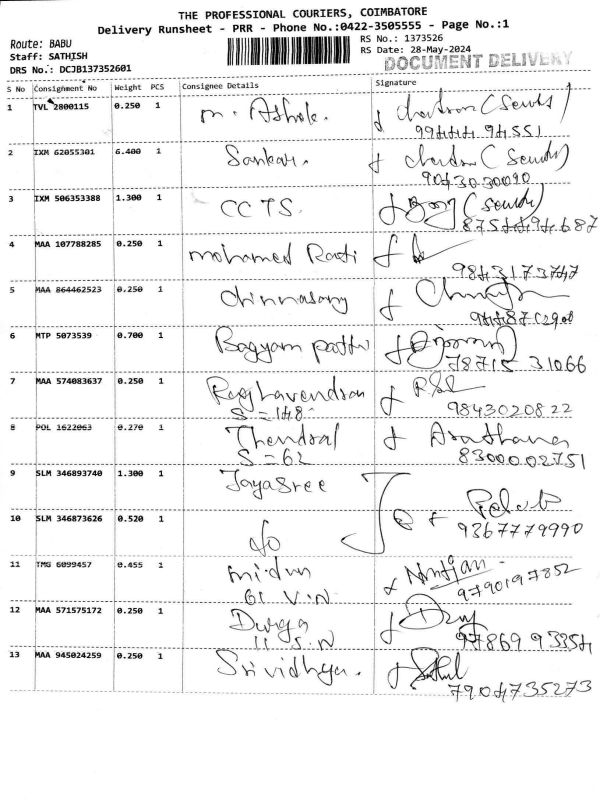 THE PROFESSIONAL COURIERS, COIMBATORE
Delivery Runsheet - PRR - Phone No.:0422-3505555 - Page No.:1
Route: BABU
Staff: SATHISH
DRS No.: DCJB137352601
RS No.: 1373526
RS Date: 28-May-2024
DOCUMENT DELIVERY
S No Consignment No Weight PCS Consignee Details Signature
1 TVL 2800115 0.250 1 M. Ashok.
2 IXM 62055301 6.400 1 Sankar.
9043030090
3 IXM 506353388 1.300 1 CCTS.
4 MAA 107788285 0.250 1 mohamed
9843173747
5 MAA 864462523 0.250 1 Chinnasamy
6 MTP 5073539 0.700 1 Bagyam
78715 31066
7 MAA 574083637 0.250 1 Raghavendran
S=148
9843020822
8 POL 1622063 0.270 1 Thendral
S=62
8300002751
9 SLM 346893740 1.300 1 Jayasree
10 SLM 346873626 0.520 1 do
9367779990
11 TMG 6099457 0.455 1 midun
61 V.N
9790197852
12 MAA 571575172 0.250 1 Durga
11 S.N
97869 93354
13 MAA 945024259 0.250 1 Srividhya.
7904735273